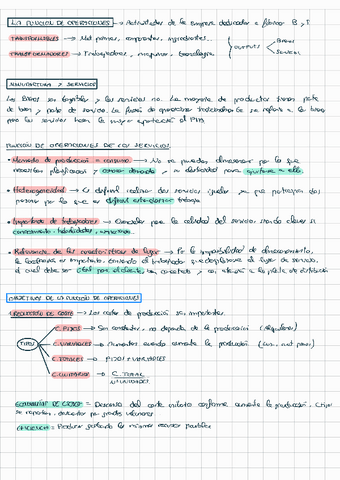 LA FUNCIÓN DE OPERACIONES → Actividades de la empresa dedicadas a fabricar B y S
TRANSFORMABLES → Mat primas, componentes, ingredientes...
TRANSFORMADORES → Trabajadores, máquinas, tecnología
OUTPUTS
Bienes
Servicios
MANUFACTURA Y SERVICIOS
Los bienes son tangibles y los servicios no. La mayoría de productos tienen parte
de bien y parte de servicio. La función de operaciones tradicionalmente se refiere a los bienes
pero los servicios tienen la mayor aportación al PIB
FUNCIÓN DE OPERACIONES DE LOS SERVICIOS
• Momento de producción = consumo → No se pueden almacenar por lo que
necesitan planificarse y conocer demanda y
ajustarse a ella.
• Heterogeneidad → Es difícil realizar dos servicios iguales ya que participan dos
personas por lo que es difícil estandarizar trabajo
• Importancia de trabajadores → por la calidad del servicio siendo claves su
conocimiento, habilidades,
• de las características de lugar → Por la imposibilidad de almacenamiento,
la es importante, cuando el de servicio,
el cual debe ser para el cliente,
OBJETIVOS DE LA FUNCIÓN DE OPERACIONES
REDUCCIÓN DE COSTES → Los costes de producción son importantes.
TIPOS
C. FIJOS → Son constantes, no depende de la producción (alquileres)
C. VARIABLES → Aumentan cuando aumenta la producción (luz, mat primas)
C. TOTALES → FIJOS + VARIABLES
C. UNITARIOS → C. TOTAL
Nº UNIDADES
ECONOMÍAS DE ESCALA = Descenso del coste unitario conforme aumenta la producción. C fijos
se reparten, descuentos por grandes volúmenes
EFICIENCIA = Producir gastando los mínimos recursos posibles